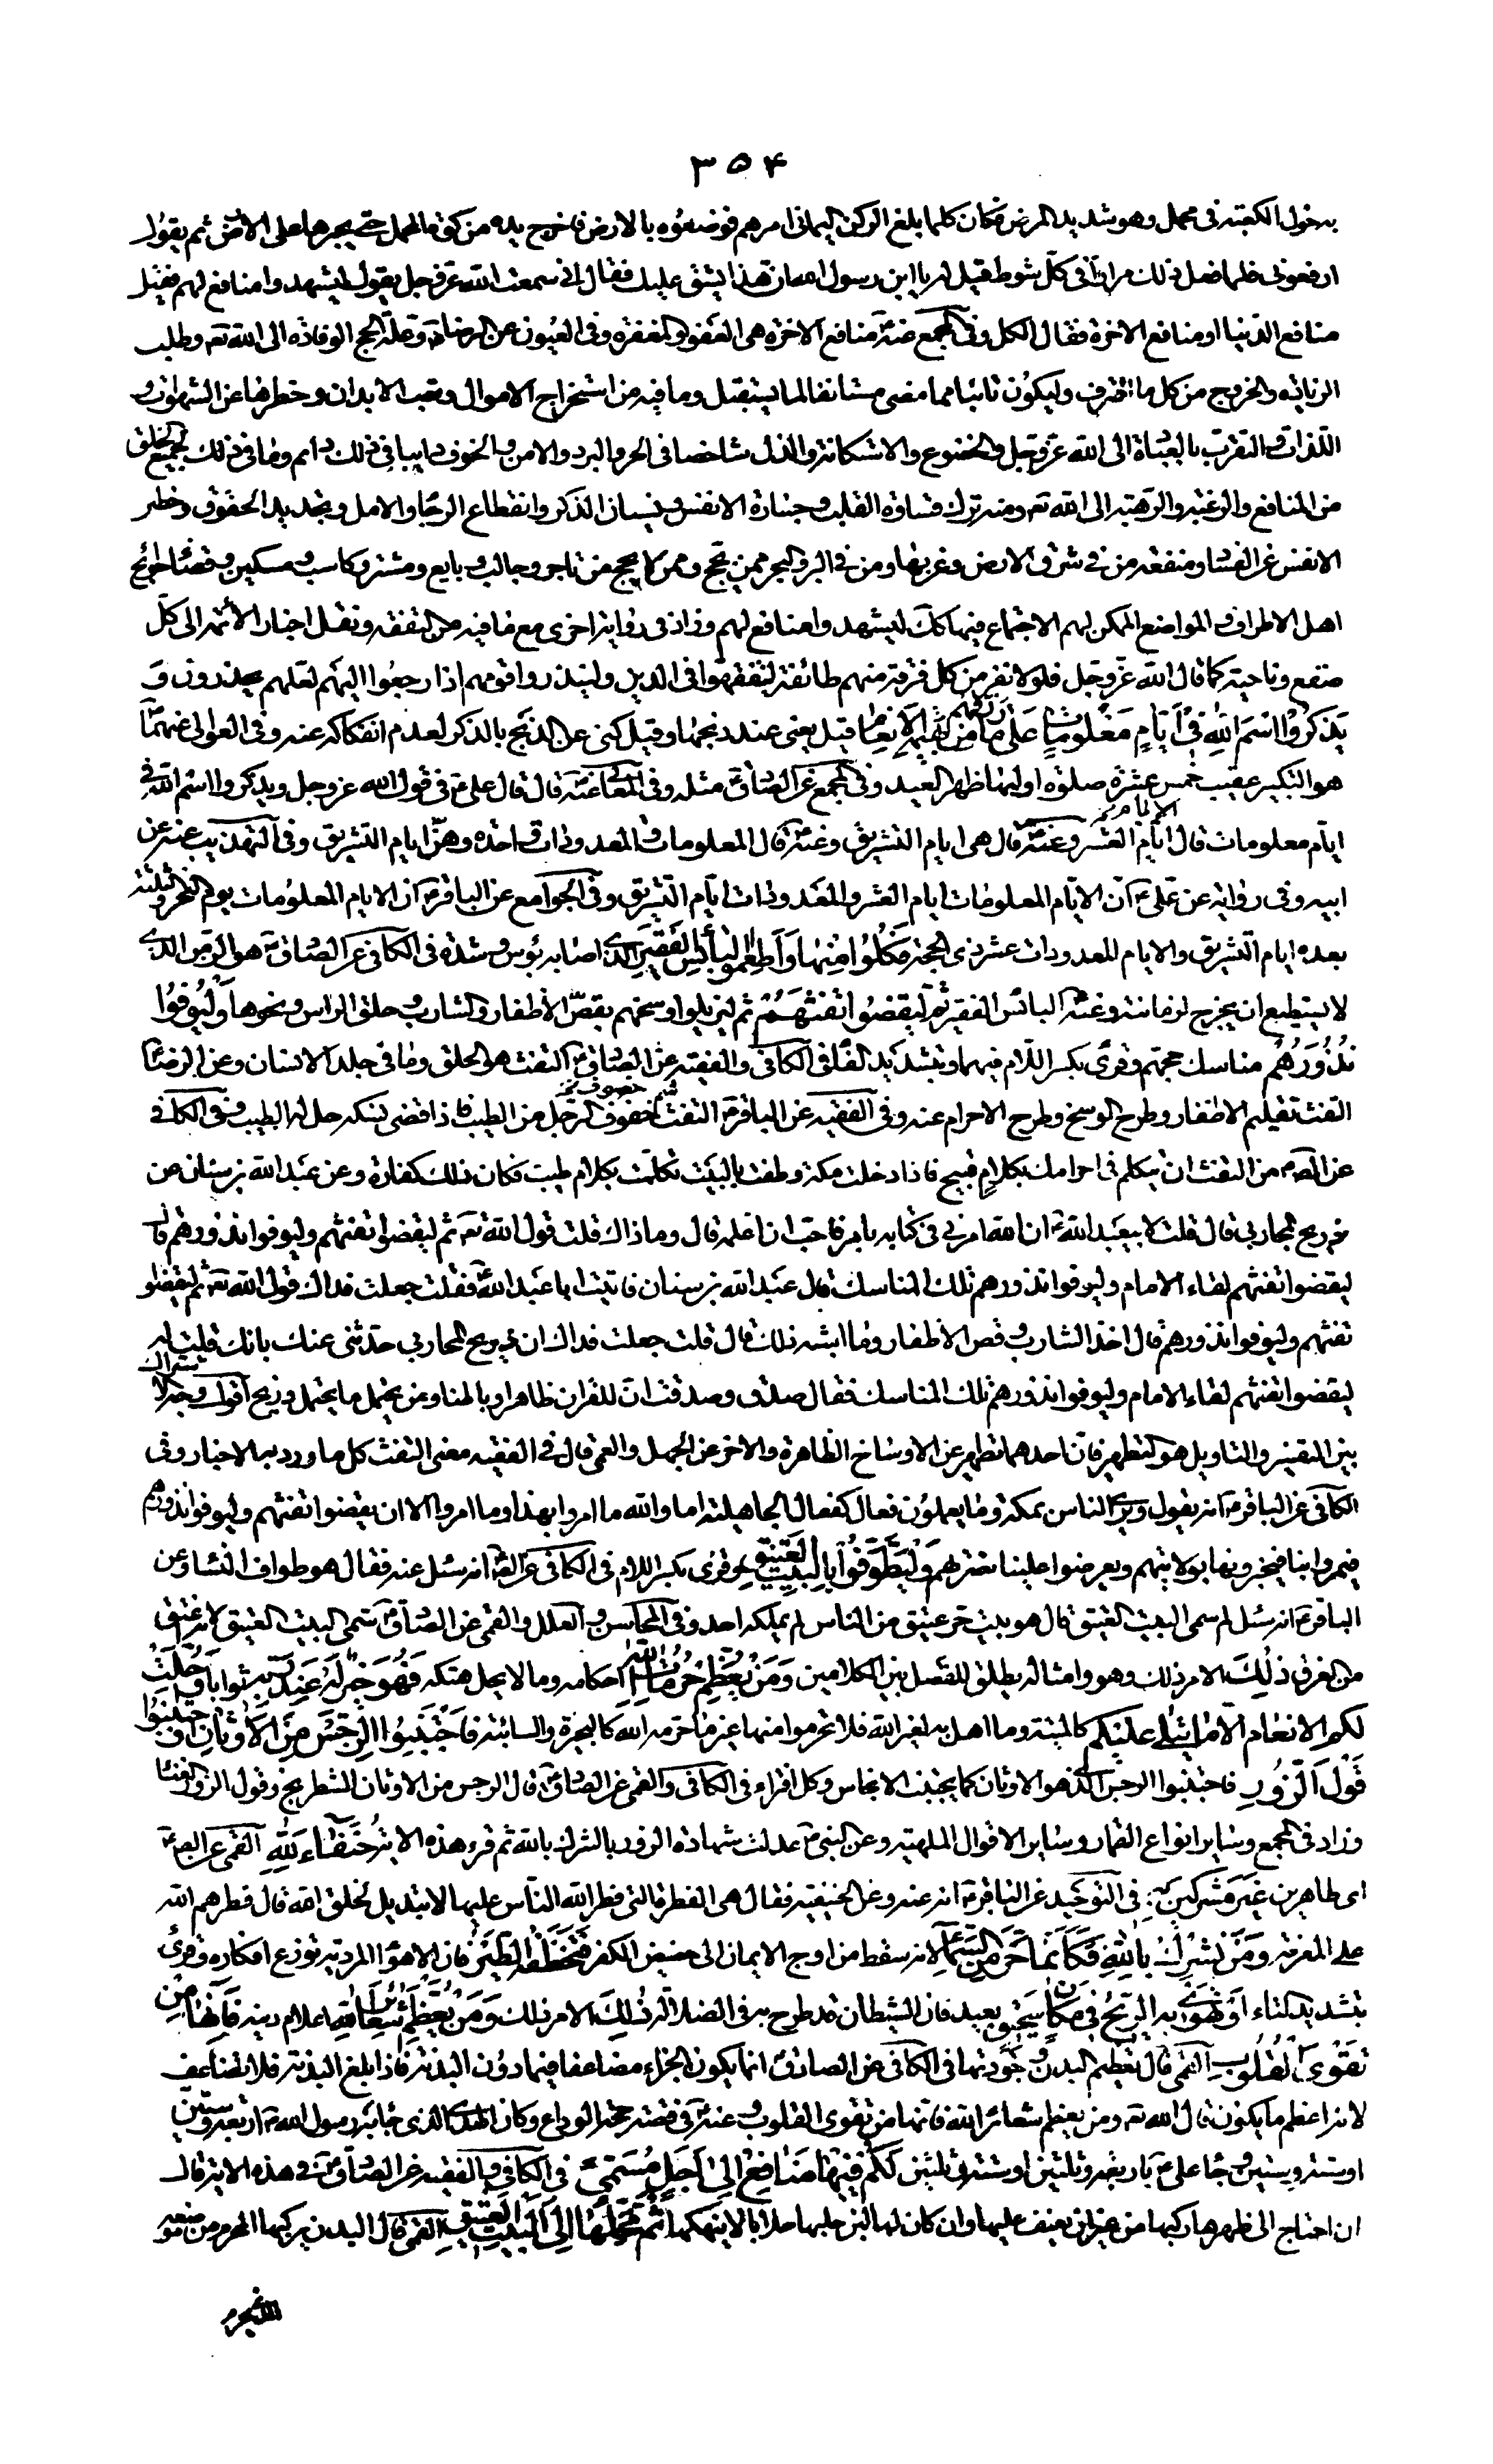 ٣٥٤
بدخول الكعبة فى محمل وهو شديد المرض فكان كلما بلغ الركن اليمانى امرهم فوضعوه بالارض فاخرج يده من كوة المحمل حتى يجرها على الارض ثم يقول
ارفعونى فلما فعل ذلك مرارا فى كل شوط قيل له يا ابن رسول الله ان هذا يشق عليك فقال انى سمعت الله عز وجل يقول ليشهدوا منافع لهم فقيل
منافع الدنيا او منافع الاخرة فقال الكل وفى المجمع عنه منافع الاخرة هى العفو والمغفرة وفى العيون عن الرضا وعلة الحج الوفادة الى الله تع وطلب
الزيادة والخروج من كل ما اقترف وليكون تائبا مما مضى مستانفا لما يستقبل وما فيه من استخراج الاموال وتعب الابدان وحظرها عن الشهوات و
اللذات والتقرب بالعبادة الى الله عز وجل والخضوع والاستكانة والذل شاخصا فى الحر والبرد والامن والخوف دايبا فى ذلك دايم وما فى ذلك لجميع الخلق
من المنافع والرغبة والرهبة الى الله تع ومنه ترك قساوة القلب وجسارة الانفس ونسيان الذكر وانقطاع الرجاء والامل وتجديد الحقوق وحظر
الانفس عن الفساد ومنفعة من فى شرق الارض وغربها ومن فى البر والبحر ممن يحج وممن لا يحج من تاجر وجالب وبايع ومشتر وكاسب ومسكين وقضاء حوائج
اهل الاطراف والمواضع الممكن لهم الاجتماع فيها كك ليشهدوا منافع لهم وزاد فى رواية اخرى مع ما فيه من التفقه ونقل اخبار الائمة الى كل
صقع وناحية كما قال الله عز وجل فلولا نفر من كل فرقة منهم طائفة ليتفقهوا فى الدين ولينذروا قومهم اذا رجعوا اليهم لعلهم يحذرون وَ
يَذْكُرُوا اسْمَ اللهِ فى أَيَّامٍ مَعْلُومَاتٍ عَلى مَا رَزَقَهُمْ مِنْ بَهِيمَةِ الاَنْعامِ قيل يعنى عند ذبحها وقيل كنى عن الذبح بالذكر لعدم انفكاكه عنه وفى العوالى عنهما
هو التكبير عقيب خمس عشرة صلوة اوليها ظهر العيد وفى المجمع عن الصادق مثله وفى المعانى عنه قال قال على فى قول الله عز وجل ويذكروا اسم الله فى
ايام معلومات قال ايام العشر وعنه قال هى ايام التشريق وعنه قال المعلومات والمعدودات واحدة وهن ايام التشريق وفى التهذيب عنه عن
ابيه وفى رواية عن على ان الايام المعلومات ايام العشر والمعدودات ايام التشريق وفى الجوامع عن الباقر ان الايام المعلومات يوم النحر وثلثة
بعده ايام التشريق والايام المعدودات عشر ذى الحجة فَكُلُوا مِنْها وَأَطْعِمُوا الْبأئِسَ الْفَقِيرَ الذى اصابه بؤس وشدة فى الكافى عن الصادق هو الزمن الذى
لا يستطيع ان يخرج لزمانته وعنه البائس الفقير ثُمَّ لْيَقْضُوا تَفَثَهُمْ ثم ليزيلوا وسخهم بقص الاظفار والشارب وحلق الراس ونحوها وَلْيُوفُوا
نُذُورَهُمْ مناسك حجهم وقرئ بكسر اللام فيهما وبتشديد الفاء فى الكافى والفقيه عن الصادق التفث هو الحلق وما فى جلد الانسان وعن الرضا
التفث تقليم الاظفار وطرح الوسخ وطرح الاحرام عنه وفى الفقيه عن الباقر التفث حفوف الرجل من الطيب فاذا قضى نسكه حل له الطيب وفى الكافى
عن الص من التفث ان تتكلم فى احرامك بكلام قبيح فاذا دخلت مكة وطفت بالبيت تكلمت بكلام طيب فكان ذلك كفارة وعن عبد الله بن سنان عن
ذريح المحاربى قال قلت لابيعبد الله ان الله امرنى فى كتابه بامر فاحب ان اعلمه قال وما ذاك قلت قول الله تع ثم ليقضوا تفثهم وليوفوا نذورهم قال
ليقضوا تفثهم لقاء الامام وليوفوا نذورهم تلك المناسك قال عبد الله بن سنان فاتيت ابا عبد الله فقلت جعلت فداك قول الله تع ثم ليقضوا
تفثهم وليوفوا نذورهم قال اخذ الشارب وقص الاظفار وما اشبه ذلك قال قلت جعلت فداك ان ذريح المحاربى حدثنى عنك بانك قلت له
ليقضوا تفثهم لقاء الامام وليوفوا نذورهم تلك المناسك فقال صدق وصدقت ان للقران ظاهرا وباطنا ومن يحتمل ما يحتمل ذريح اقول وجه الاشتراك
بين التفسير والتاويل هو التطهير فان احدهما تطهير عن الاوساخ الظاهرة والاخر عن الجهل والعمى قال فى الفقيه معنى التفث كل ما ورد به الاخبار وفى
الكافى عن الباقر انه يقول ويرى الناس بمكة وما يعملون فعال كفعال الجاهلية اما والله ما امروا بهذا وما امروا الا ان يقضوا تفثهم وليوفوا نذورهم
فيمروا بنا فيخبرونا بولايتهم ويعرضوا علينا نصرتهم وَلْيَطَّوَّفُوا بِالْبَيْتِ الْعَتِيقِ وقرئ بكسر اللام فى الكافى عن الص انه سئل عنه فقال هو طواف النساء وعن
الباقر انه سئل لم سمى البيت العتيق قال هو بيت حر عتيق من الناس لم يملكه احد وفى المحاسن والعلل والقمى عن الصادق سمى البيت العتيق لانه عتق
من الغرق ذلِكَ الامر ذلك وهو وامثاله يطلق للفصل بين الكلامين وَمَنْ يُعَظِّمْ حُرُماتِ اللهِ احكامه وما لا يحل هتكه فَهُوَ خَيْرٌ لَهُ عِنْدَ رَبِّهِ ثوابا وَأُحِلَّتْ
لَكُمُ الاَنْعامُ اِلاّ ما يُتْلى عَلَيْكُمْ كالميتة وما اهل به لغير الله فلا تحرموا منها غير ما حرمه الله كالبحيرة والسائبة فَاجْتَنِبُوا الرِّجْسَ مِنَ الاَوْثانِ وَاجْتَنِبُوا
قَوْلَ الزُّورِ فاجتنبوا الرجس الذى هو الاوثان كما يجتنب الانجاس وكل افتراء فى الكافى والقمى عن الصادق قال الرجس من الاوثان الشطرنج وقول الزور الغناء
وزاد فى المجمع وساير انواع القمار وساير الاقوال الملهية وعن النبى عدلت شهادة الزور بالشرك بالله ثم قرء هذه الاية حُنَفاءَ لِلّهِ القمى عن الص
اى طاهرين غَيْرَ مُشْرِكِينَ بِهِ فى التوحيد عن الباقر انه عنه وعن الحنيفية فقال هى الفطرة التى فطر الله الناس عليها لا تبديل لخلق الله قال فطرهم الله
على المعرفة وَمَنْ يُشْرِكْ بِاللهِ فَكَأَنَّما خَرَّ مِنَ السَّماءِ لانه سقط من اوج الايمان الى حضيض الكفر فَتَخْطَفُهُ الطَّيْرُ فان الاهواء المردية توزع افكاره وقرئ
بتشديد الطاء أَوْ تَهْوى بِهِ الرِّيحُ فى مَكانٍ سَحِيقٍ بعيد فان الشيطان قد طرح به فى الضلالة ذلِكَ الامر ذلك وَمَنْ يُعَظِّمْ شَعائِرَ اللهِ اعلام دينه فَإِنَّها مِنْ
تَقْوَى الْقُلُوبِ القمى قال تعظيم البدن وجودتها فى الكافى عن الصادق انما يكون الجزاء مضاعفا فيما دون البدنة فاذا بلغ البدنة فلا تضاعف
لانه اعظم ما يكون قال الله تع ومن يعظم شعائر الله فانها من تقوى القلوب وعنه فى قصة حجة الوداع وكان الهدى الذى جاء به رسول الله اربعة وستين
او ستة وستين وجاء على باربعة وثلثين او ستة وثلثين لَكُمْ فيها مَنافِعُ اِلى أَجَلٍ مُسَمًّى فى الكافى والفقيه عن الصادق فى هذه الاية قال
ان احتاج الى ظهرها ركبها من غير ان يعنف عليها وان كان لها لبن حلبها حلابا لا ينهكها ثُمَّ مَحِلُّها اِلَى الْبَيْتِ الْعَتِيقِ القمى قال البدن يركبها المحرم من موضعه